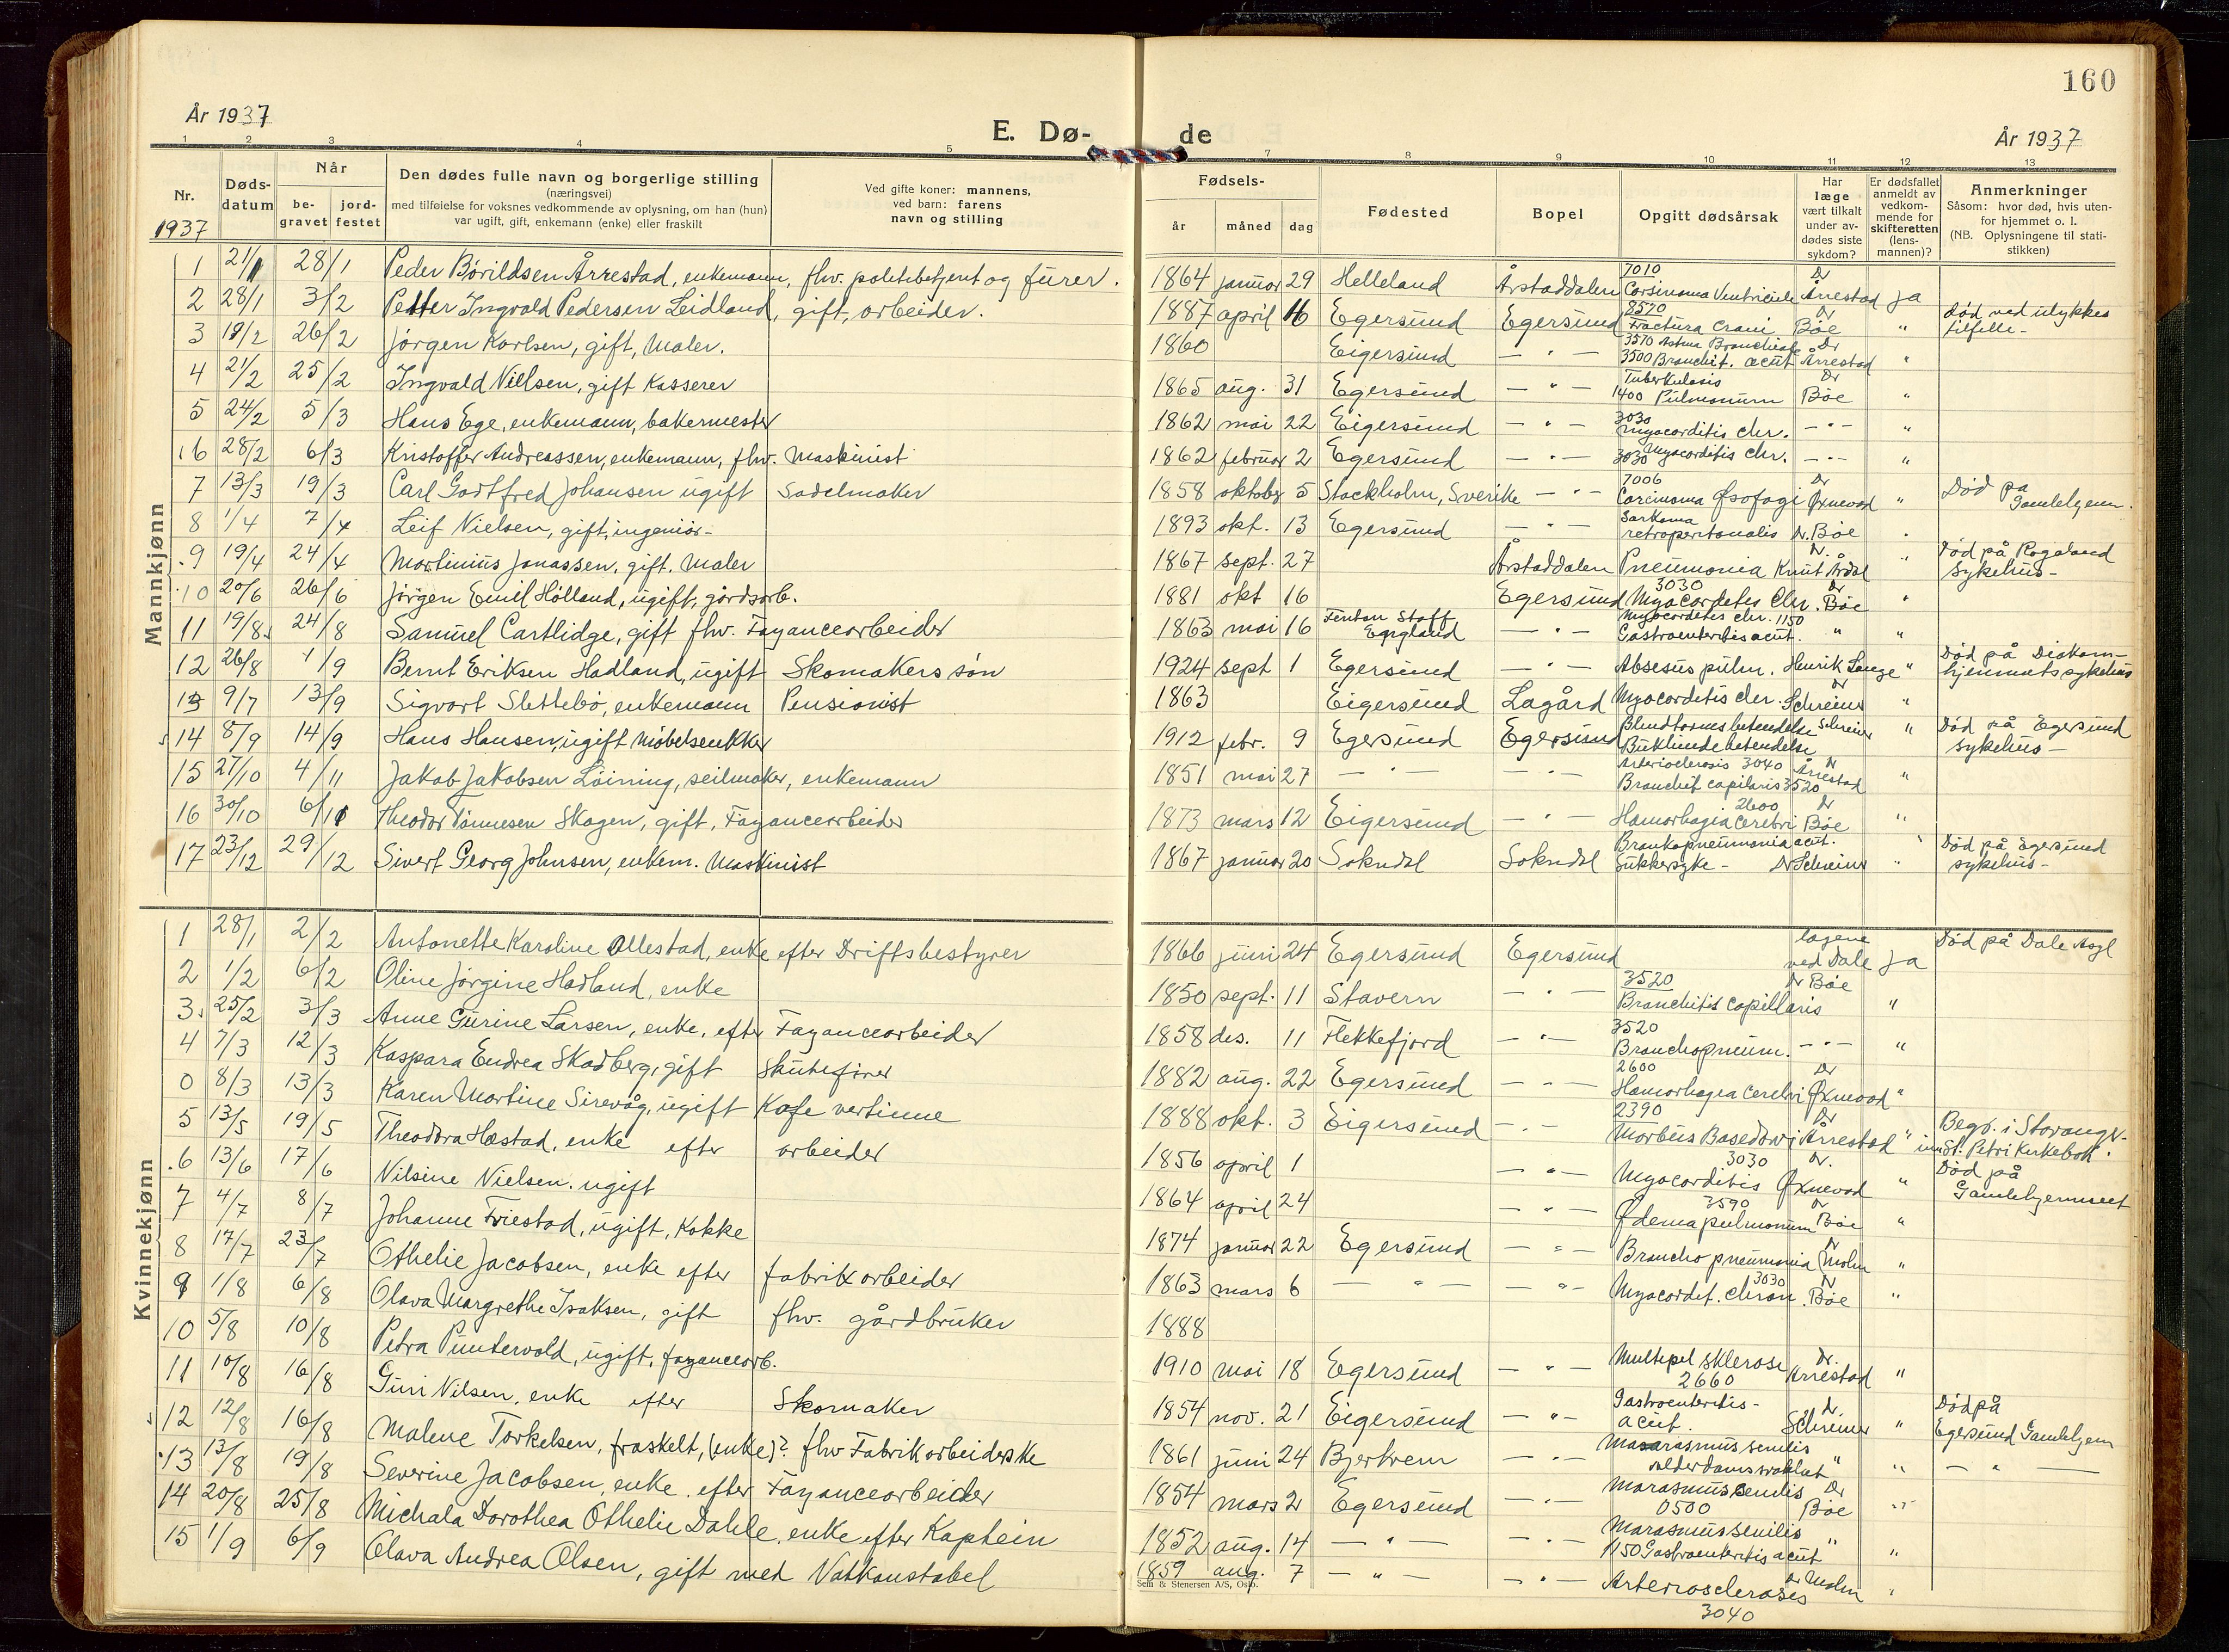 160
År 1937
E. Dø-
de
År 1937
1 2 3 4 5
7 8 9 10 11 12 13
Nr.
1937
Døds-
datum
Når
be-
gravet
jord-
festet
Den dødes fulle navn og borgerlige stilling
(næringsvei)
med tilføielse for voksnes vedkommende av oplysning, om han (hun)
var ugift, gift, enkemann (enke) eller fraskilt
Ved gifte koner: mannens,
ved barn: farens
navn og stilling
Fødsels-
år måned dag
Fødested
Bopel
Opgitt dødsårsak
Har
læge
vært tilkalt
under av-
dødes siste
sykdom?
Er dødsfallet
anmeldt av
vedkom-
mende for
skifteretten
(lens-
mannen)?
Anmerkninger
Såsom: hvor død, hvis uten-
for hjemmet o. l.
(NB. Oplysningene til stati-
stikken)
Mannkjønn
1 21/1 28/1 Peder Børildsen Årrestad, enkemann, fhv. politibetjent og fürer. 1864 januar 29 Helleland Årstaddalen 7010 Carsinoma Ventriculi Dr Årrestad ja
2 28/1 3/2 Petter Ingvald Pedersen Leidland, gift, arbeider. 1887 april 16 Egersund Egersund 8520 Fractura Crani Dr Bøe " Død ved ulykkes
tilfelle-
3 19/2 26/2 Jørgen Karlsen, gift, Maler. 1860 Eigersund — " — 3570 Astma Bronchiale
3500 Bronchit. acut Dr Årrestad "
4 21/2 25/2 Ingvald Nielsen, gift Kasserer 1865 aug. 31 Egersund — " — Tuberkulosis
1400 Pulmonum Dr Bøe "
5 24/2 5/3 Hans Ege, enkemann, bakermester 1862 mai 22 Eigersund — " — 3030 Myocarditis chr. — " — "
6 28/2 6/3 Kristoffer Andreassen, enkemann, fhv. Maskinist 1862 februar 2 Egersund — " — 3030 Myocarditis chr. — " — "
7 13/3 19/3 Carl Godtfred Johansen ugift Sadelmaker 1858 oktober 5 Stockholm, Sverike — " — 7006 Carcinoma Øsofagi Dr Øxnevad " Død på
Gamlehjem.
8 1/4 7/4 Leif Nielsen, gift, ingeniør- 1893 okt. 13 Egersund — " — Sarkoma
retroperitonalis Dr. Bøe "
9 19/4 24/4 Martinius Jonassen, gift. Maler 1867 sept. 27 Årstaddalen Pneumonia Dr. Knut Årdal " Død på Rogaland
Sykehus-
10 20/6 26/6 Jørgen Emil Hølland, ugift, gårdsarb. 1881 okt 16 Egersund 3030 Myocardetes Chr. Dr Bøe "
11 19/8 24/8 Samuel Cartlidge, gift fhv. Fayancearbeider 1863 mai 16 Fenton Staff
England — " — Myocardetes chr. 1150
Gastroenteritis acut. " "
12 26/8 1/9 Bernt Eriksen Hadland, ugift Skomakers søn 1924 sept 1 Egersund — " — Absesus pulm. Henrik Lange " Død på Diakon-
hjemmets sykehus
13 9/7 13/9 Sigvart Slettebø, enkemann Pensionist 1863 Eigersund Lagård Myocarditis chr. Dr Schreiner "
14 8/9 14/9 Hans Hansen, ugift Møbelsnekker 1912 febr. 9 Egersund Egersund Blindtarmsbetendelse
Bukhindebetendelse Schreiner " Død på Egersund
sykehus-
15 27/10 4/11 Jakob Jakobsen Löining, seilmaker, enkemann 1851 mai 27 — " — — " — Arterioclerosis 3040
Bronchit capilaris 3520 Dr Årrestad "
16 30/10 6/11 Theodor Tønnesen Skogen, gift, Fayancearbeider 1873 mars 12 Eigersund — " — 2600
Hamorhagia cerebri Dr Bøe "
17 23/12 29/12 Sivert Georg Johnsen, enkem. Maskinist 1867 januar 20 Sokndal Sokndal Bronkopneumonia acut.
Sukkersyke- Dr Schreiner " Død på Egersund
sykehus-
Kvinnekjønn
1 28/1 2/2 Antonette Karoline Ollestad, enke efter Driftsbestyrer 1866 juni 24 Egersund Egersund lægene
ved Dale ja Død på Dale Asyl
2 1/2 6/2 Oline Jørgine Hadland, enke 1850 sept. 11 Stavern — " — 3520
Bronchitis capillaris Dr Bøe "
3 25/2 3/3 Anne Gurine Larsen, enke, efter Fayancearbeider 1858 des. 11 Flekkefjord — " — 3520
Bronchopneum. — " — "
4 7/3 12/3 Kaspara Endrea Skadberg, gift Skutefører 1882 aug. 22 Egersund — " — 2600
Hamorhagea cerebri Dr Øxnevad "
0 8/3 13/3 Karen Martine Sirevåg, ugift Kafe vertinne 1888 okt. 3 Eigersund — " — 2390
Morbus Basedowi Dr Årrestad " Begr. i Stavanger.
inn St. Petri Kirkebok.
5 13/5 19/5 Theodora Hæstad, enke efter arbeider 1856 april 1 — " — 3030
Myocarditis Dr. Øxnevad " Død på
Gamlehjemmet
6 13/6 17/6 Nilsine Nielsen. ugift 1864 april 24 — " — 3590
Ødema pulmonum Dr Bøe "
7 4/7 8/7 Johanne Friestad, ugift, Kokke 1874 januar 22 Egersund — " — Broncho pneumonia Dr Molm "
8 17/7 23/7 Othelie Jacobsen, enke efter fabrikarbeider 1863 mars 6 — " — — " — 3030
Myocardet. chron. Dr Bøe "
9 1/8 6/8 Olava Margrethe Isaksen, gift fhv. gårdbruker 1888
10 5/8 10/8 Petra Puntervold, ugift, fayancearb. 1910 mai 18 Egersund — " — Multipel sklerose
2660 Dr. Årrestad "
11 10/8 16/8 Guri Nilsen, enke efter Skomaker 1854 nov. 21 Eigersund — " — Gastroenteritis-
acut. Dr. Schreiner " Død på
Egersund Gamlehjem
12 12/8 16/8 Malene Torkelsen, fraskelt, (enke)? fhv Fabrikarbeiderske 1861 juni 24 Bjerkrem — " — Marasmus senilis
alderdomssvakhet " " — " —
13 13/8 19/8 Severine Jacobsen, enke efter Fayancearbeider 1854 mars 2 Egersund — " — Marasmus senilis
0500 Dr Bøe "
14 20/8 25/8 Michala Dorothea Othelie Dahle, enke efter Kaptein 1852 aug. 14 — " — — " — Marasmus senilis
1150 Gastroenteritis acut " "
15 1/9 6/9 Olava Andrea Olsen, gift med Vaktkonstabel 1859 aug. 7 — " — — " — Arteriosclerosis
3040 Dr Molm "
Sem & Stenersen A/S, Oslo.